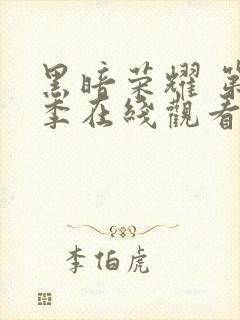 黑暗荣耀 第
季在线觀看
李伯虎